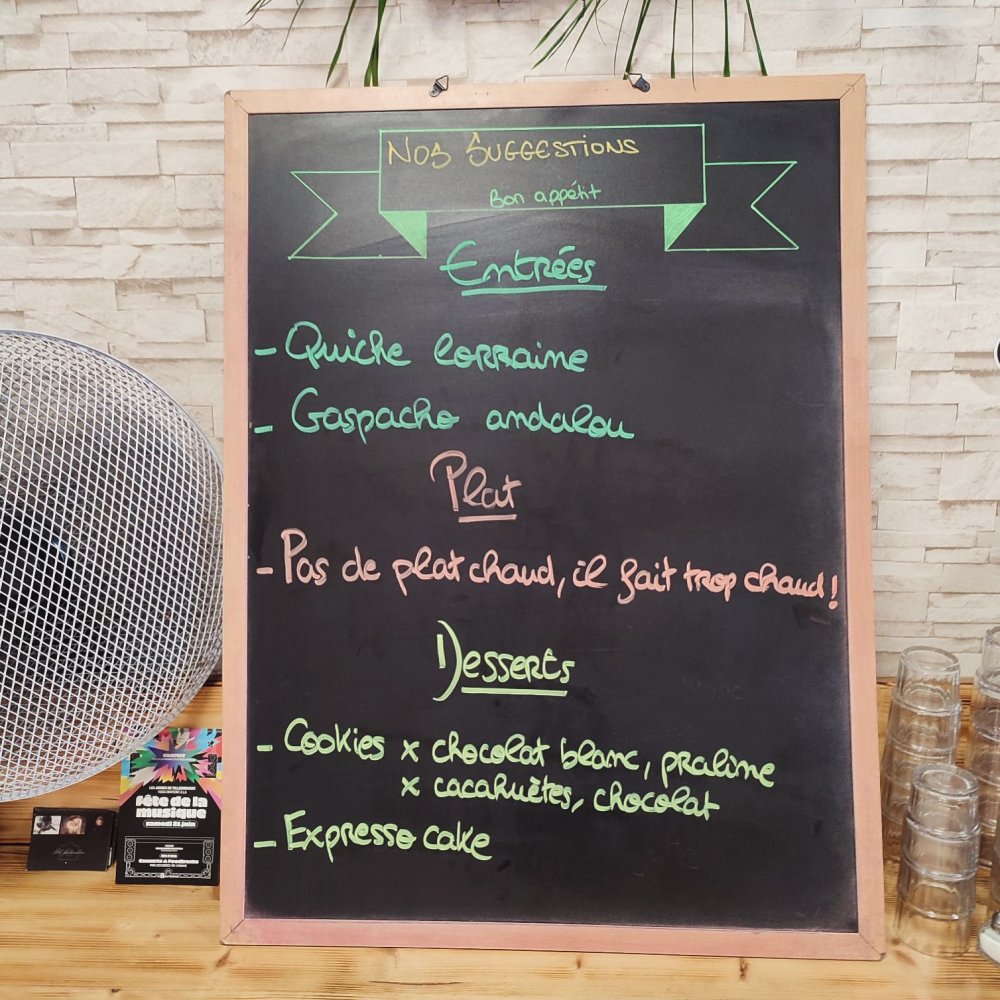 Nos Suggestions
Bon appétit
Entrées
- Quiche lorraine
- Gaspacho andalou
Plat
- Pas de plat chaud, il fait trop chaud!
Desserts
- Cookies x chocolat blanc, praline
x cacahuètes, chocolat
- Expresso cake
fête de la
musique
samedi 21 juin